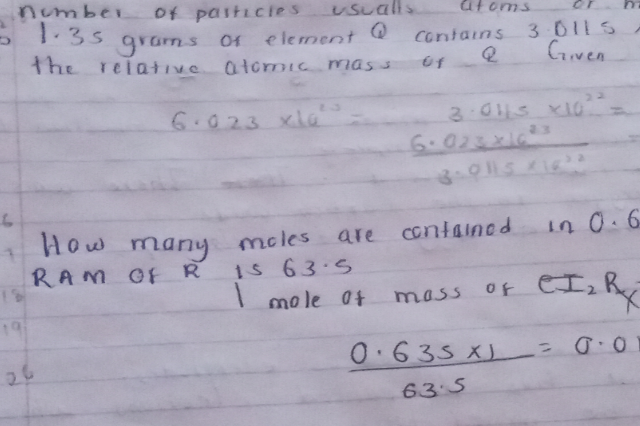 number of particles usually atoms or m
1.35 grams of element Q contains 3.0115
the relative atomic mass of Q Given
6.023 x10²³ = 3.0115 x10²² =
6.023x10²³
3.0115 x10²²
6
How many moles are contained in 0.6
RAM of R is 63.5
18
1 mole of mass of
19
0.635 x 1 = 0.01
26
63.5